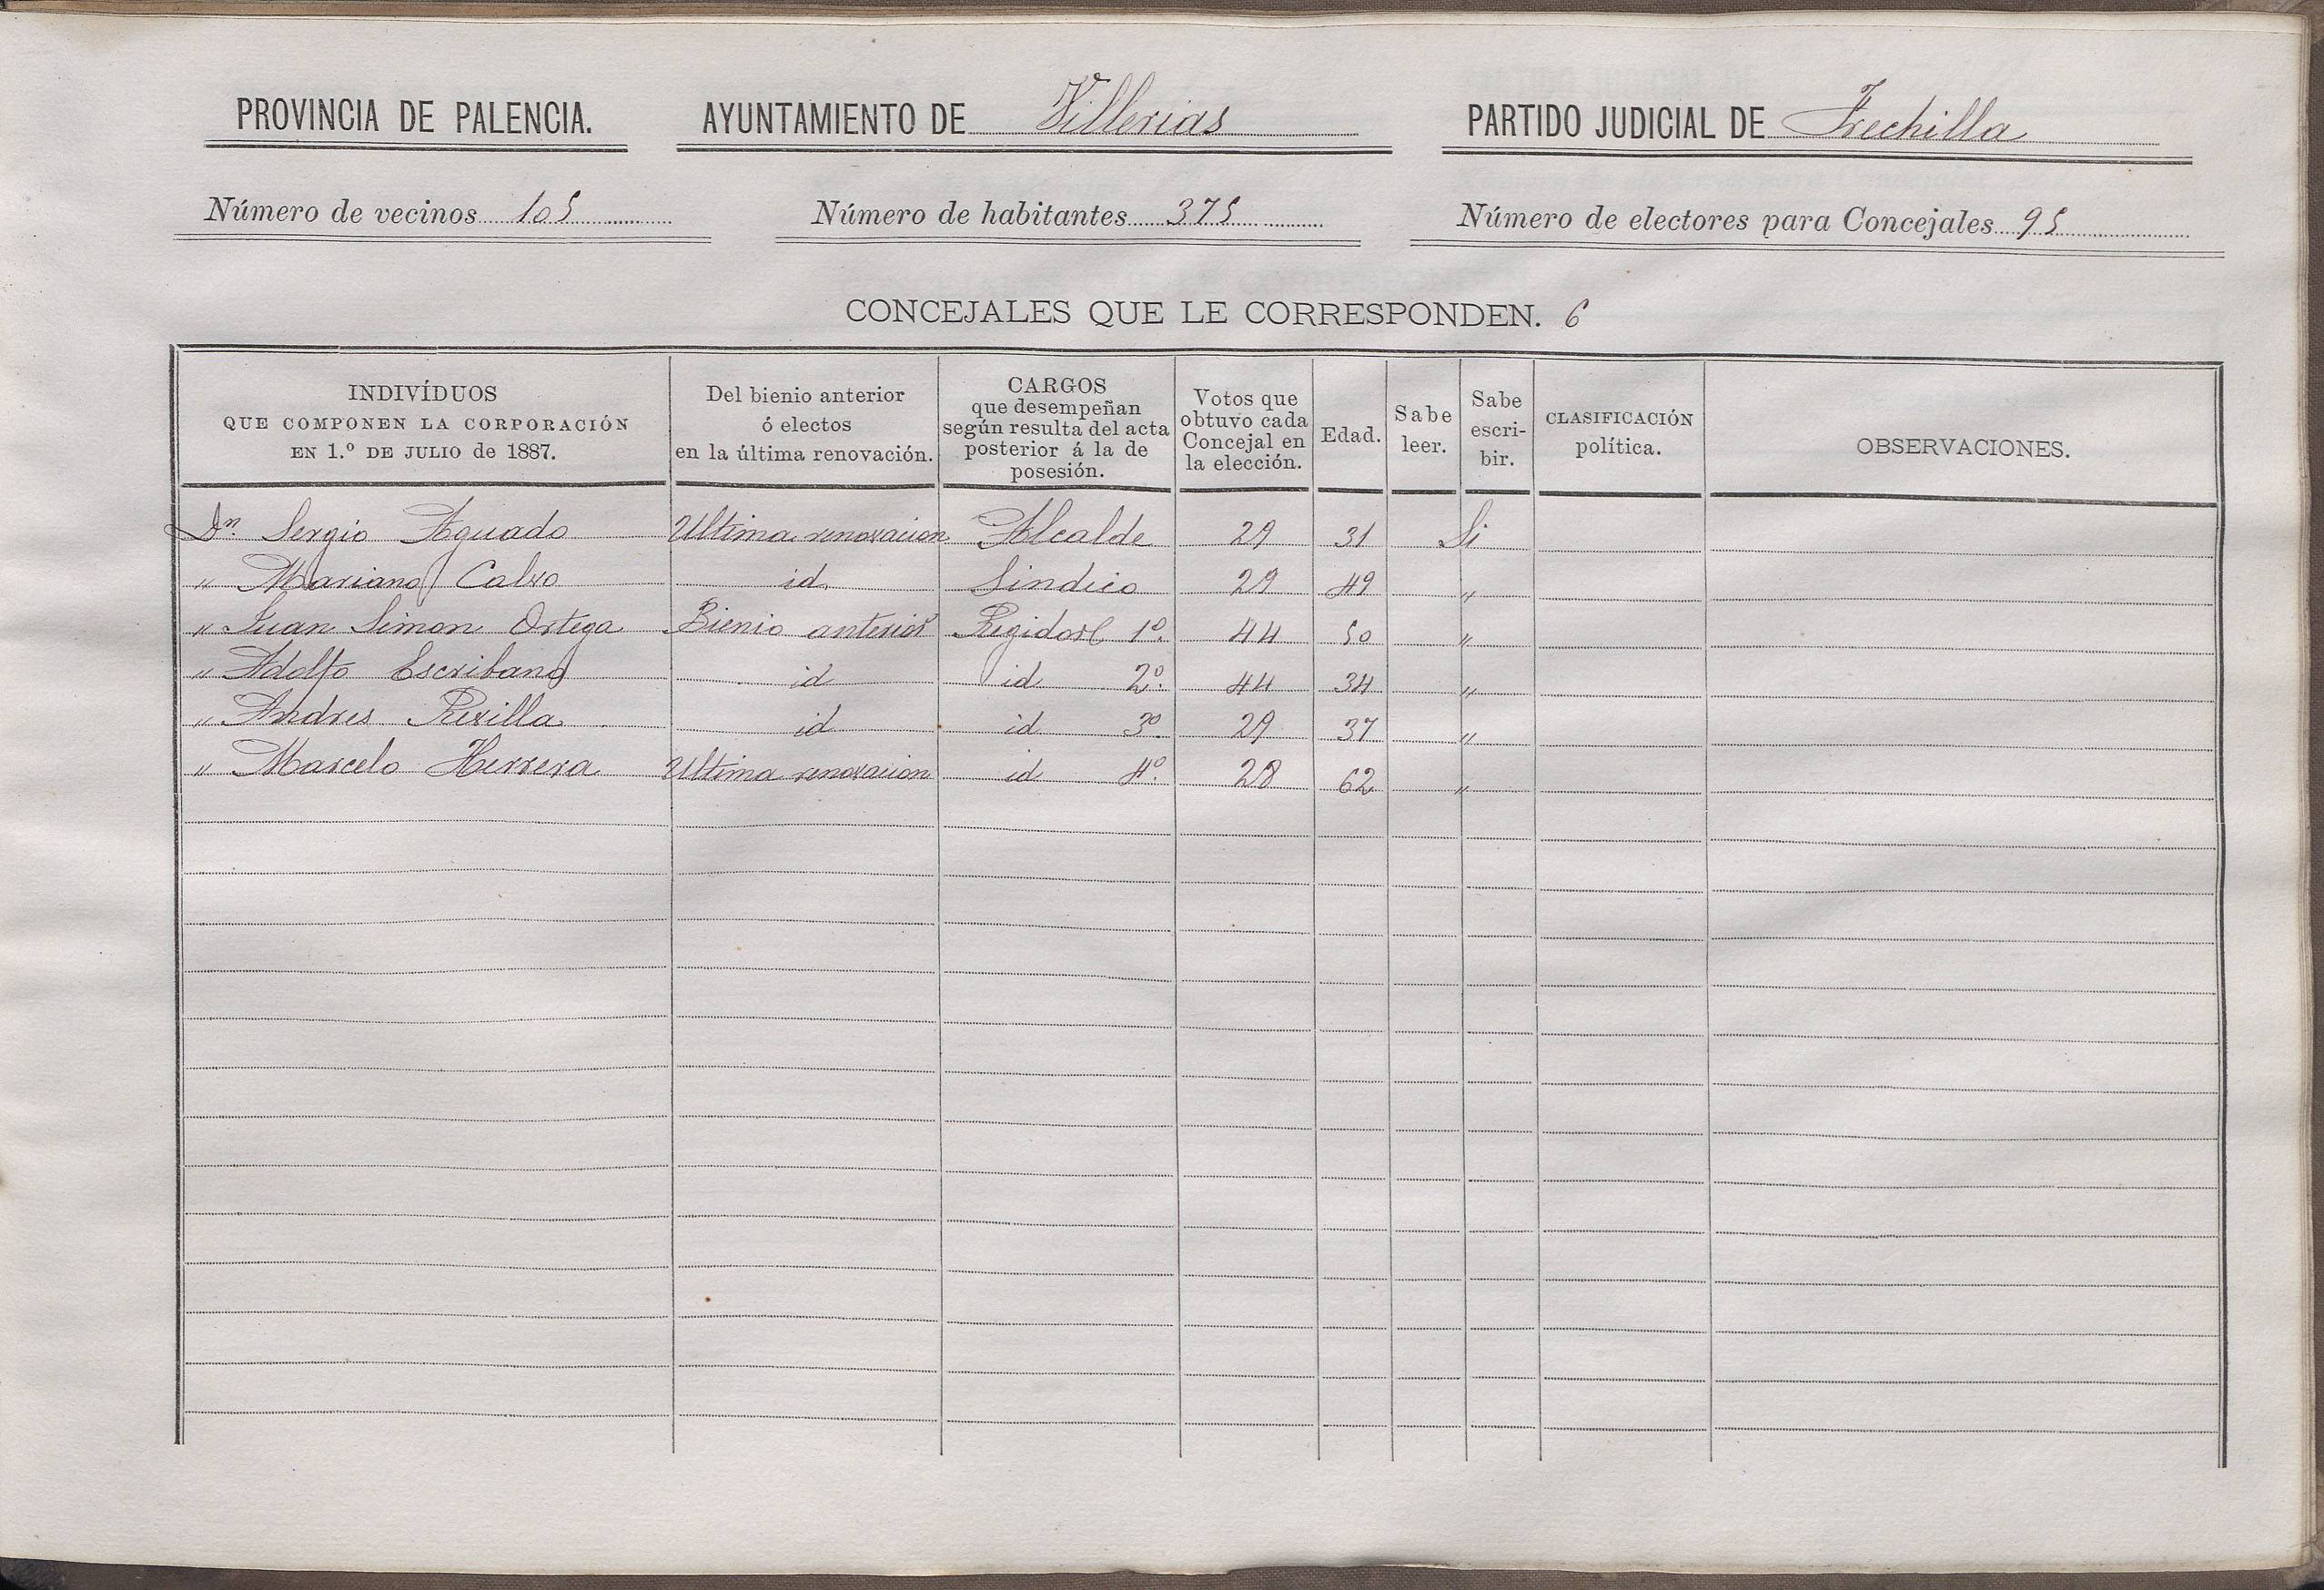 PROVINCIA DE PALENCIA. AYUNTAMIENTO DE Villerias PARTIDO JUDICIAL DE Frechilla
Número de vecinos 105 Número de habitantes 375 Número de electores para Concejales 95
CONCEJALES QUE LE CORRESPONDEN. 6
INDIVÍDUOS
QUE COMPONEN LA CORPORACIÓN
EN 1.º DE JULIO de 1887.
Del bienio anterior
ó electos
en la última renovación.
CARGOS
que desempeñan
según resulta del acta
posterior á la de
posesión.
Votos que
obtuvo cada
Concejal en
la elección.
Edad.
Sabe
leer.
Sabe
escri-
bir.
CLASIFICACIÓN
política.
OBSERVACIONES.
Dn. Sergio Aguado Ultima renovacion Alcalde 29 31 Si
" Mariano Calvo id. Sindico 29 49 "
" Juan Simon Ortega Bienio anterior Regidor 1º. 44 50 "
" Adolfo Escribano id id 2º. 44 34 "
" Andres Revilla id id 3º. 29 37 "
" Marcelo Herrera Ultima renovacion id 4º. 28 62 "